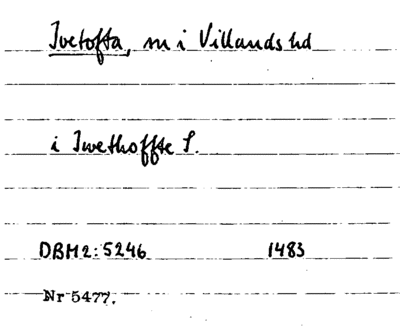 Ivetofta, sn i Villands hd
i Iwethoffte S.
DBM2:5246 1483
Nr 5477.